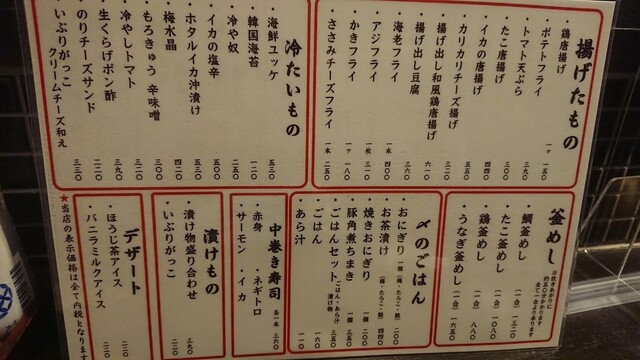 揚げたもの
・鶏唐揚げ
・ポテトフライ 一ヶ 一五〇
・トマト天ぷら 三九〇
・たこ唐揚げ 五〇〇
・イカの唐揚げ 四四〇
・カリカリチーズ揚げ 五五〇
・揚げ出し和風鶏唐揚げ 六一〇
・揚げ出し豆腐 三六〇
・海老フライ 一本 四〇〇
・アジフライ 一枚 三一〇
・かきフライ 一ヶ 一八〇
・ささみチーズフライ 一本 二五〇
冷たいもの
・海鮮ユッケ 五三〇
・韓国海苔 一二〇
・冷や奴 二五〇
・イカの塩辛 五三〇
・ホタルイカ沖漬け 四二〇
・梅水晶
・もろきゅう 辛味噌 三〇〇
・冷やしトマト 三九〇
・生くらげポン酢 二二〇
・のりチーズサンド 三三〇
・いぶりがっこ
クリームチーズ和え 三三〇
釜めし
※炊きあがりに
約五〇分かかります
全て一合より承ります
・鯛釜めし (一合) 一三二〇
・たこ釜めし (一合) 一一〇〇
・鶏釜めし (一合) 八八〇
・うなぎ釜めし (一合) 一六五〇
〆のごはん
・おにぎり 一個 (梅・たらこ・鮭) 二〇〇
・お茶漬け (梅・たらこ・鮭) 四四〇
・焼きおにぎり 一個 二五〇
・豚角煮ちまき 一個 三五〇
・ごはんセット ごはん・あら汁
漬け物 三五〇
・ごはん 一六〇
・あら汁 一一〇
中巻き寿司
・赤身 ・ネギトロ
・サーモン ・イカ 各一本 三六〇
漬けもの
・漬け物盛り合わせ 三九〇
・いぶりがっこ 二五〇
デザート
・ほうじ茶アイス 二二〇
・バニラミルクアイス 二二〇
★当店の表示価格は全て内税となります